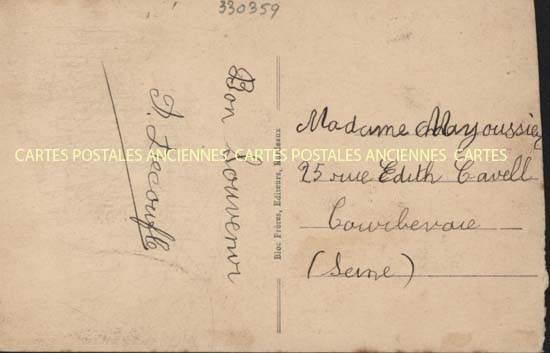 330359
Bon Souvenir
J. Lecoufle
Bloc Frères, Editeurs, Bordeaux
Madame Mayoussier
25 rue Edith Cavell
Courbevoie
(Seine)
CARTES POSTALES ANCIENNES CARTES POSTALES ANCIENNES CARTES